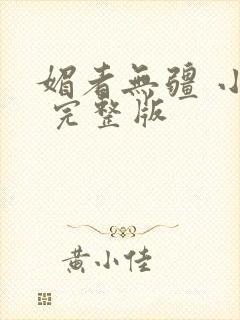 媚者無疆 小
完整版
黄小佳